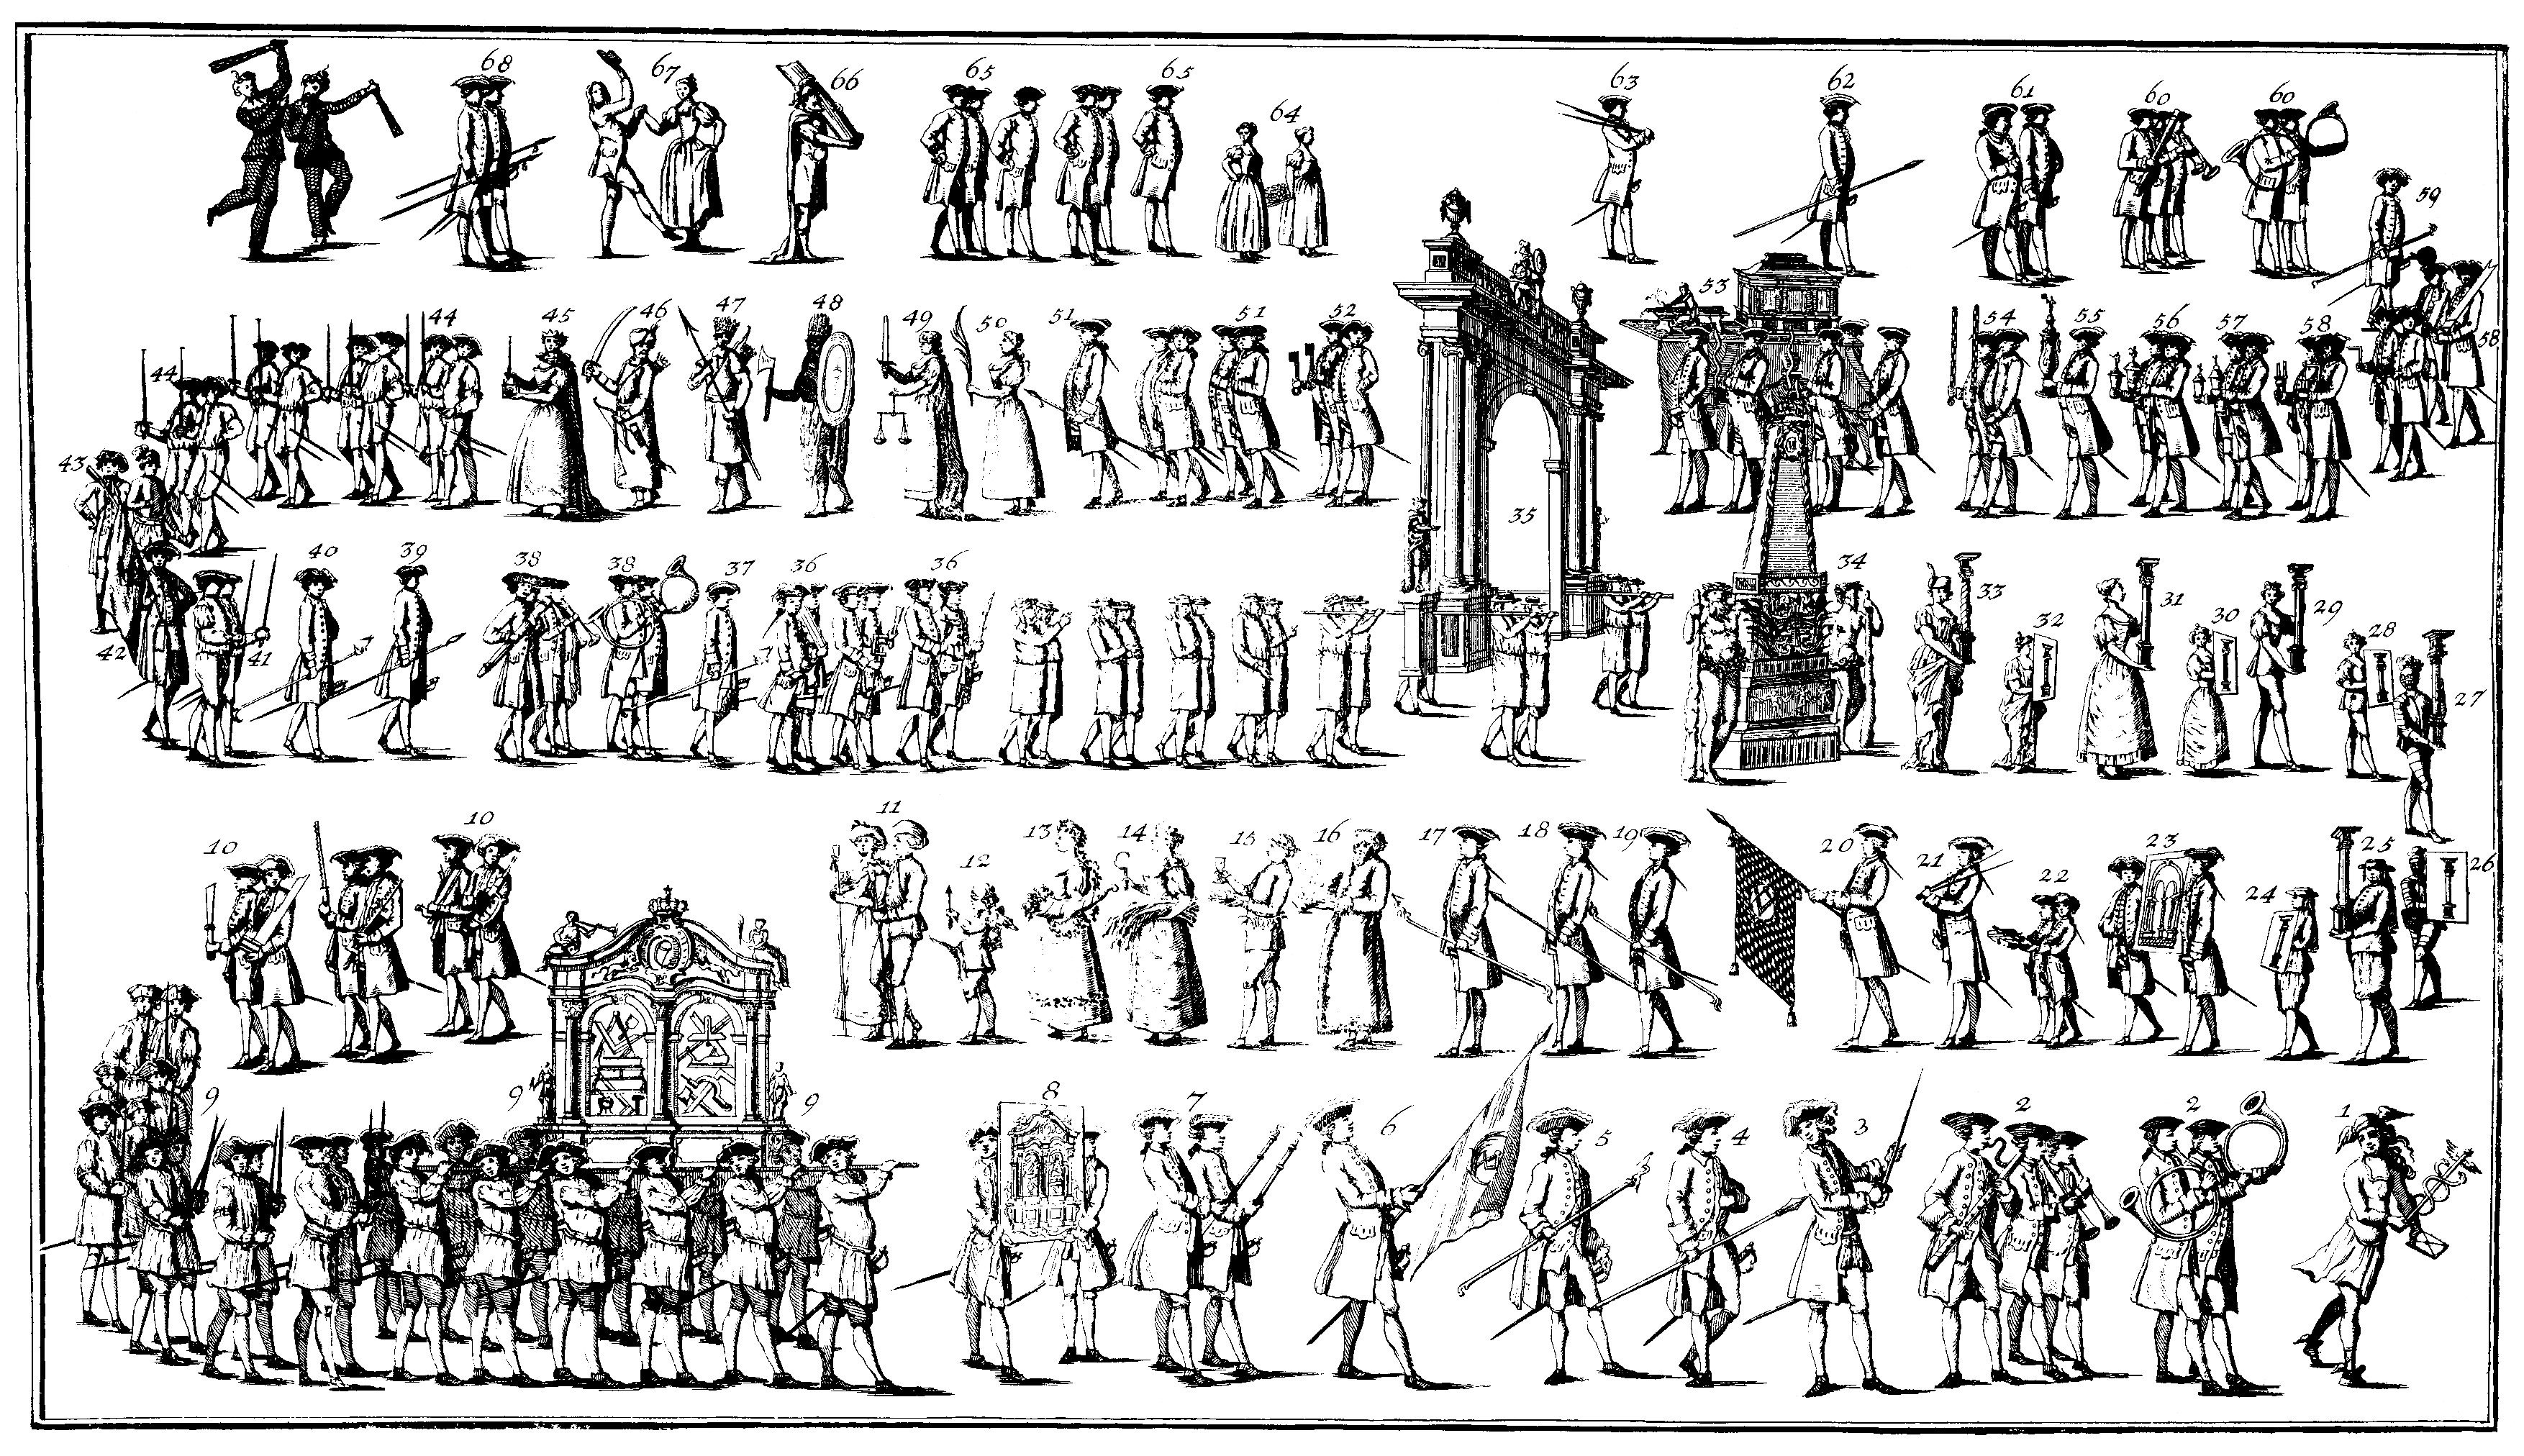 68 67 66 65 65 64 63 62 61 60 60
59
44 44 45 46 47 48 49 50 51 51 52 53 54 55 56 57 58 58
43
42 41 40 39 38 38 37 36 36 35 34 33 32 31 30 29 28 27
10 10 11 12 13 14 15 16 17 18 19 20 21 22 23 24 25 26
9 9 9 8 7 6 5 4 3 2 2 1